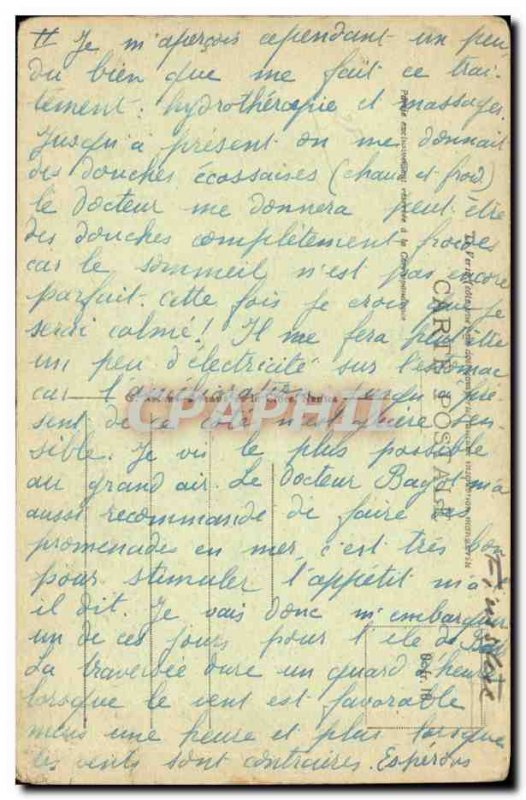 II Je m'aperçois cependant un peu
du bien que me fait ce trai-
tement : hydrothérapie et massages.
Jusqu'à présent on me donnait
des douches écossaises (chaud et froid)
le docteur me donnera peut-être
des douches complètement froides
car le sommeil n'est pas encore
parfait. Cette fois je crois que je
serai calmé ! Il me fera peut-être
un peu d'électricité sur l'estomac
car l'amélioration jusqu'à pré-
sent de ce côté n'est guère sen-
sible. Je vis le plus possible
au grand air. Le Docteur Bagot m'a
aussi recommandé de faire des
promenades en mer, c'est très bon
pour stimuler l'appétit m'a
il dit. Je vais donc m'embarquer
un de ces jours pour l'ile de Batz
La traversée dure un quard d'heure
lorsque le vent est favorable
mais une heure et plus lorsque
les vents sont contraires. Espérons
CARTE POSTALE
Partie exclusivement réservée à la Correspondance
CPAPHIL
Nantes
Finistère